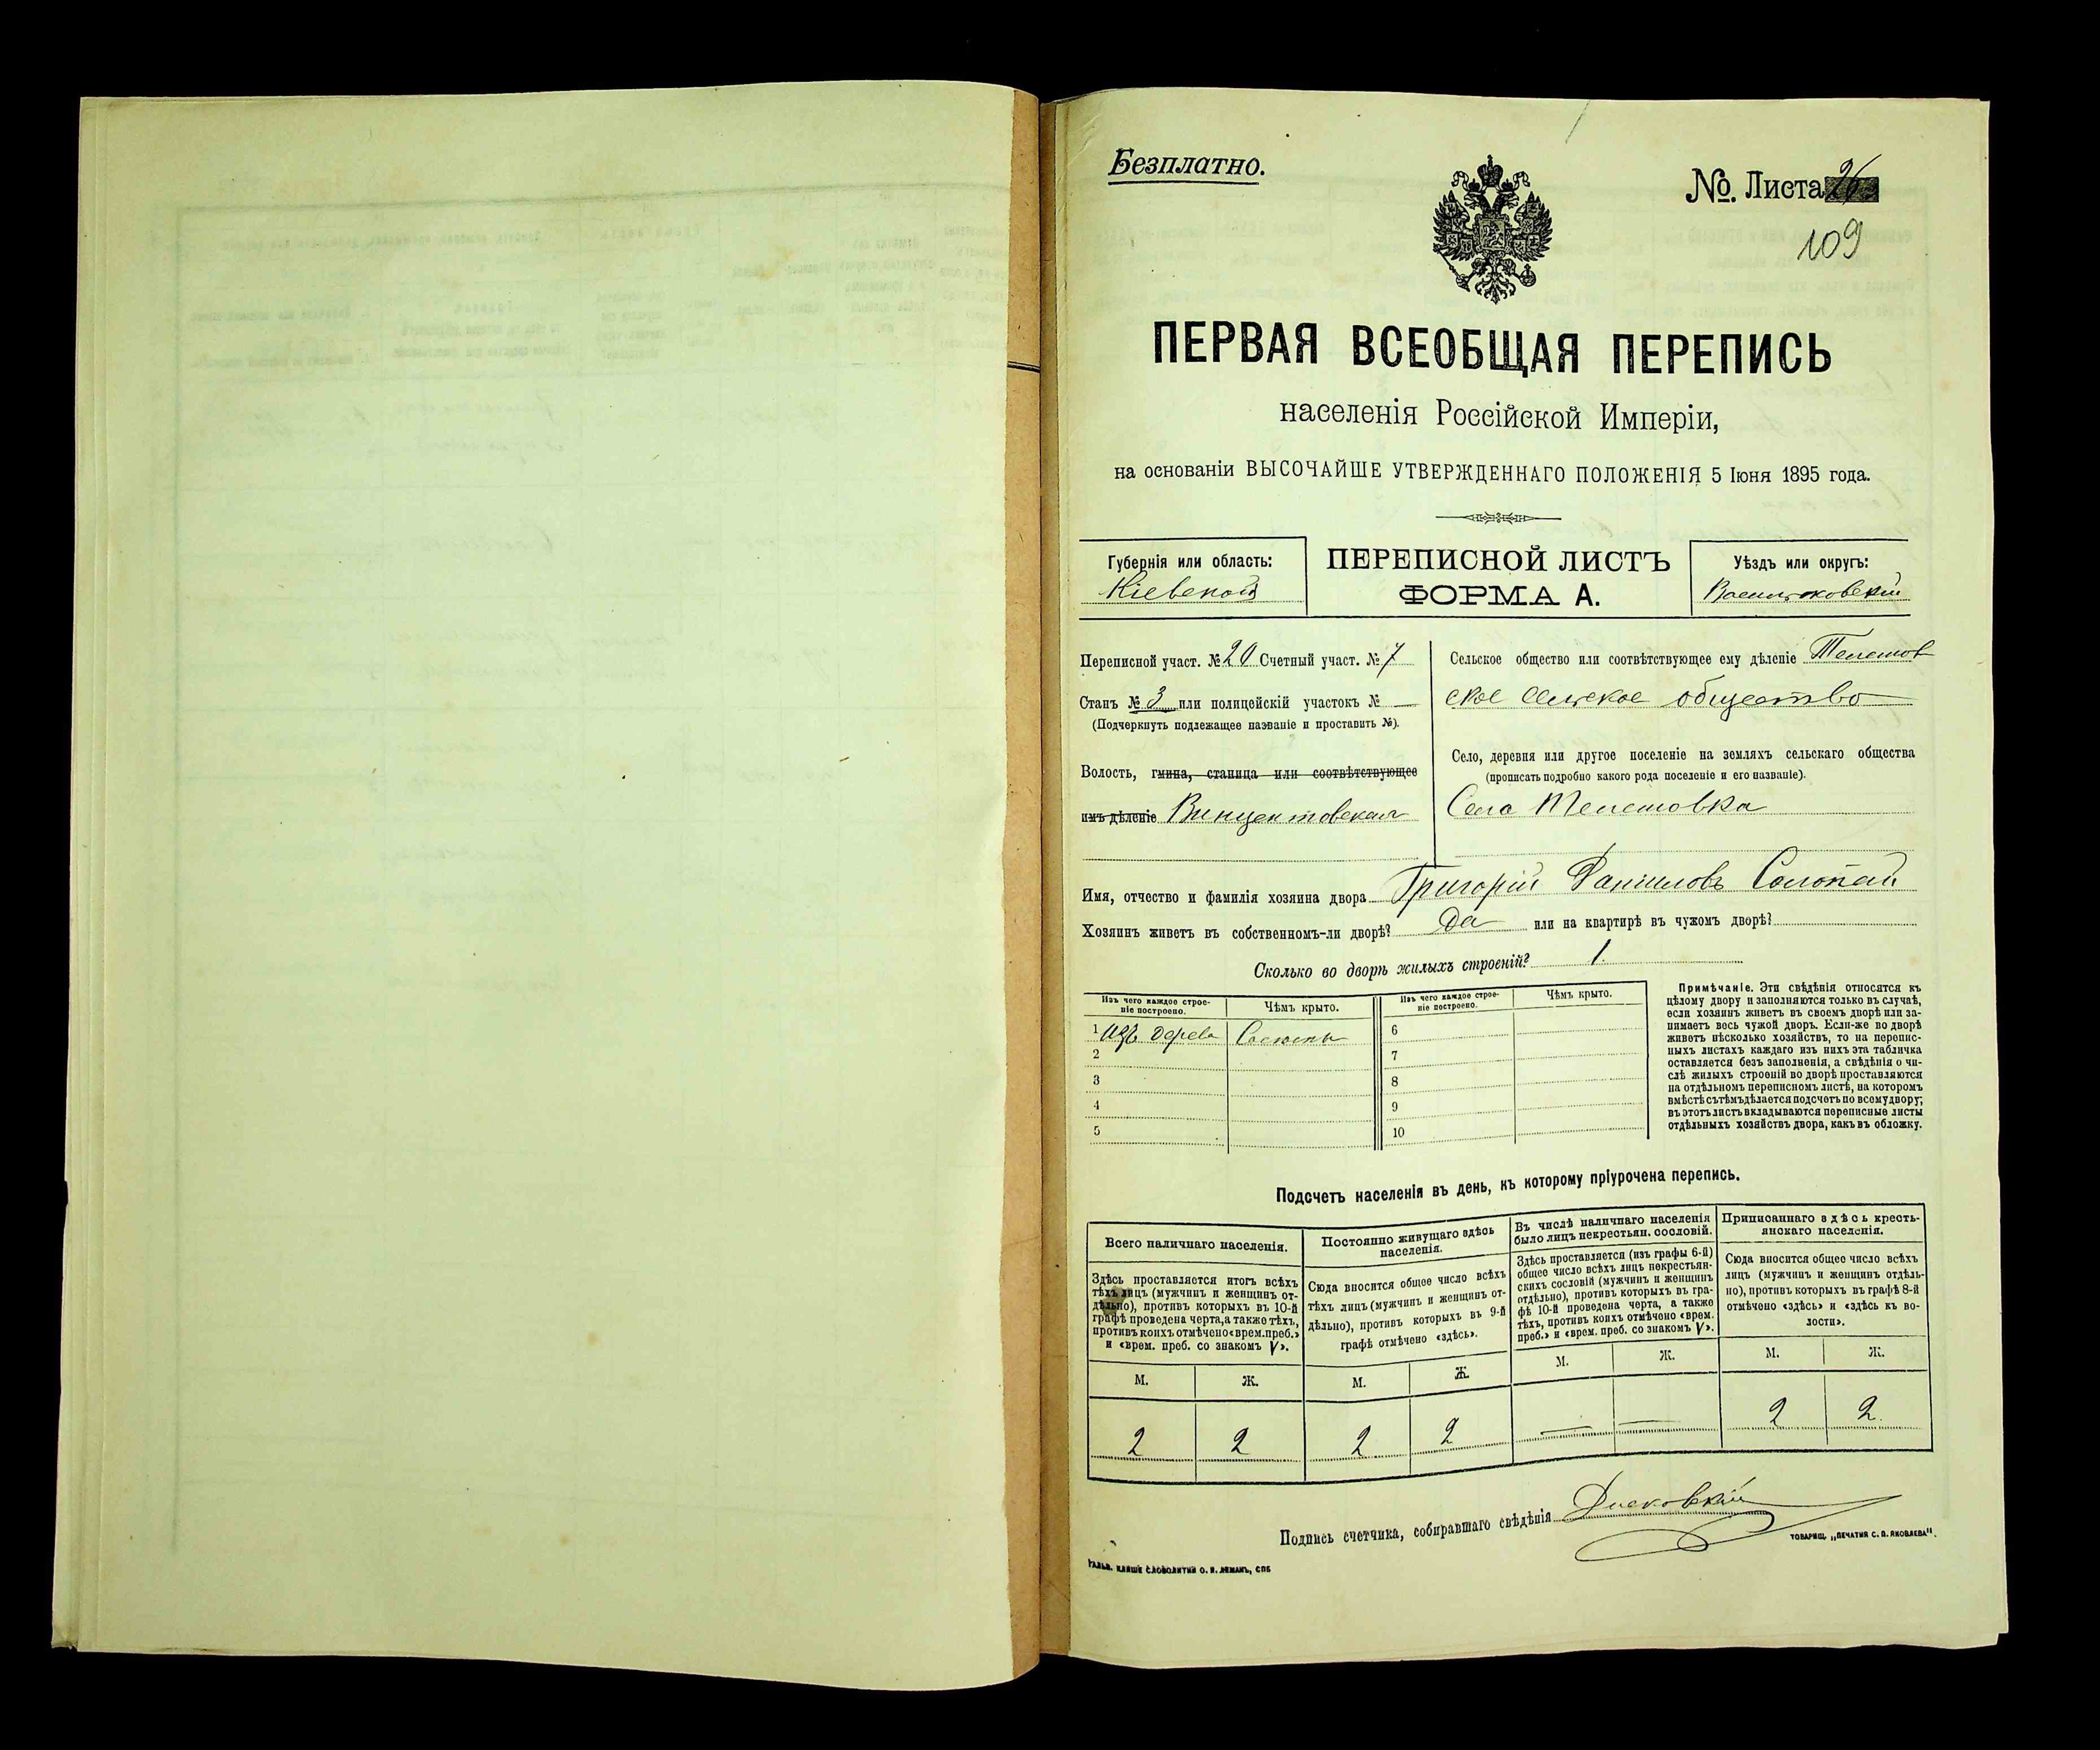 Безплатно.
№. Листа 26
109
ПЕРВАЯ ВСЕОБЩАЯ ПЕРЕПИСЬ
населенія Россійской Имперіи,
на основаніи ВЫСОЧАЙШЕ УТВЕРЖДЕННАГО ПОЛОЖЕНІЯ 5 Іюня 1895 года.
Губернія или область:
Кіевской
ПЕРЕПИСНОЙ ЛИСТЪ
ФОРМА А.
Уѣздъ или округъ:
Васильковскій
Переписной участ. № 20 Счетный участ. № 7
Станъ № 3 или полицейскій участокъ № —
(Подчеркнуть подлежащее названіе и проставить №).
Волость, гмина, станица или соотвѣтствующее
имъ дѣленіе Винцентовская
Сельское общество или соотвѣтствующее ему дѣленіе Телешов
ское сельское общество
Село, деревня или другое поселеніе на земляхъ сельскаго общества
(прописать подробно какого рода поселеніе и его названіе).
Село Телешовка
Имя, отчество и фамилія хозяина двора Григорій Даниловъ Солопай
Хозяинъ живетъ въ собственномъ-ли дворѣ? Да или на квартирѣ въ чужомъ дворѣ?
Сколько во дворѣ жилыхъ строеній? 1.
Изъ чего каждое строе-
ніе построено.
Чѣмъ крыто.
Изъ чего каждое строе-
ніе построено.
Чѣмъ крыто.
1 Изъ дерева Соломы
2
3
4
5
6
7
8
9
10
Примѣчаніе. Эти свѣдѣнія относятся къ
цѣлому двору и заполняются только въ случаѣ,
если хозяинъ живетъ въ своемъ дворѣ или за-
нимаетъ весь чужой дворъ. Если-же во дворѣ
живетъ нѣсколько хозяйствъ, то на перепис-
ныхъ листахъ каждаго изъ нихъ эта табличка
оставляется безъ заполненія, а свѣдѣнія о чи-
слѣ жилыхъ строеній во дворѣ проставляются
на отдѣльномъ переписномъ листѣ, на которомъ
вмѣстѣ съ тѣмъ дѣлается подсчетъ по всему двору;
въ этотъ листъ вкладываются переписные листы
отдѣльныхъ хозяйствъ двора, какъ въ обложку.
Подсчетъ населенія въ день, къ которому пріурочена перепись.
Всего наличнаго населенія.
Здѣсь проставляется итогъ всѣхъ
тѣхъ лицъ (мужчинъ и женщинъ от-
дѣльно), противъ которыхъ въ 10-й
графѣ проведена черта, а также тѣхъ,
противъ коихъ отмѣчено «врем. преб.»
и «врем. преб. со знакомъ V».
М. Ж.
2 2
Постоянно живущаго здѣсь
населенія.
Сюда вносится общее число всѣхъ
тѣхъ лицъ (мужчинъ и женщинъ от-
дѣльно), противъ которыхъ въ 9-й
графѣ отмѣчено «здѣсь».
М. Ж.
2 2
Въ числѣ наличнаго населенія
было лицъ некрестьян. сословій.
Здѣсь проставляется (изъ графы 6-й)
общее число всѣхъ лицъ некрестьян-
скихъ сословій (мужчинъ и женщинъ
отдѣльно), противъ которыхъ въ гра-
фѣ 10-й проведена черта, а также
тѣхъ, противъ коихъ отмѣчено «врем.
преб.» и «врем. преб. со знакомъ V».
М. Ж.
— —
Приписаннаго здѣсь кресть-
янскаго населенія.
Сюда вносится общее число всѣхъ
лицъ (мужчинъ и женщинъ отдѣль-
но), противъ которыхъ въ графѣ 8-й
отмѣчено «здѣсь» и «здѣсь къ во-
лости».
М. Ж.
2 2.
Подпись счетчика, собиравшаго свѣдѣнія
ГАЛЬВ. КЛИШЕ СЛОВОЛИТНИ О. И. ЛЕМАНЪ, СПБ
ТОВАРИЩ. „ПЕЧАТНЯ С. П. ЯКОВЛЕВА".